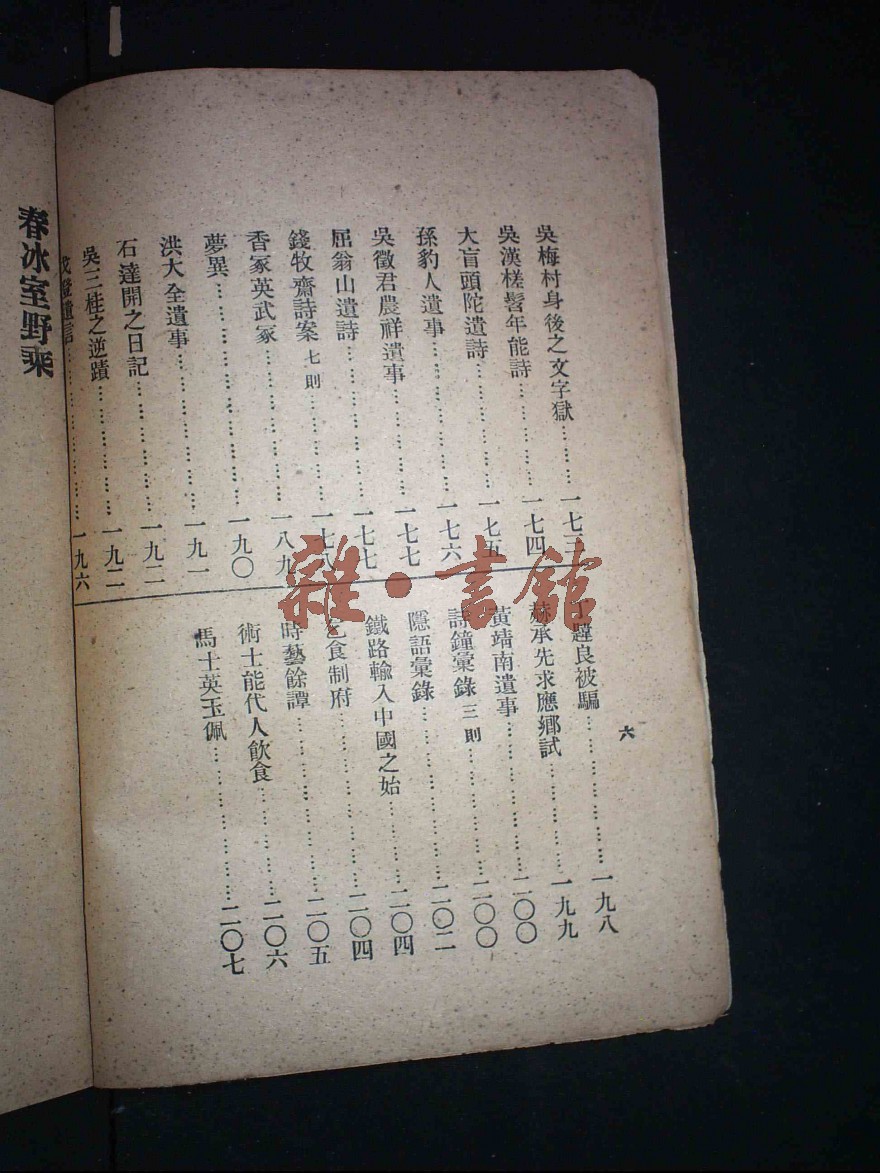 六
吳梅村身後之文字獄…………一七三
吳漢槎髫年能詩…………一七四
大盲頭陀遺詩…………一七五
孫豹人遺事…………一七六
吳徵君農祥遺事…………一七七
屈翁山遺詩…………一七七
錢牧齋詩案 七則…………一七八
香冢英武冢…………一八九
夢異…………一九〇
洪大全遺事…………一九一
石達開之日記…………一九二
吳三桂之逆蹟…………一九二
遺言…………一九六
丁韙良被騙…………一九八
蘇承先求應鄉試…………一九九
黃靖南遺事…………二〇〇
詩鐘彙錄 三則…………二〇〇
隱語彙錄…………二〇二
鐵路輸入中國之始…………二〇四
乞食制府…………二〇四
時藝餘譚…………二〇五
術士能代人飲食…………二〇六
馬士英玉佩…………二〇七
春冰室野乘
雜·書館